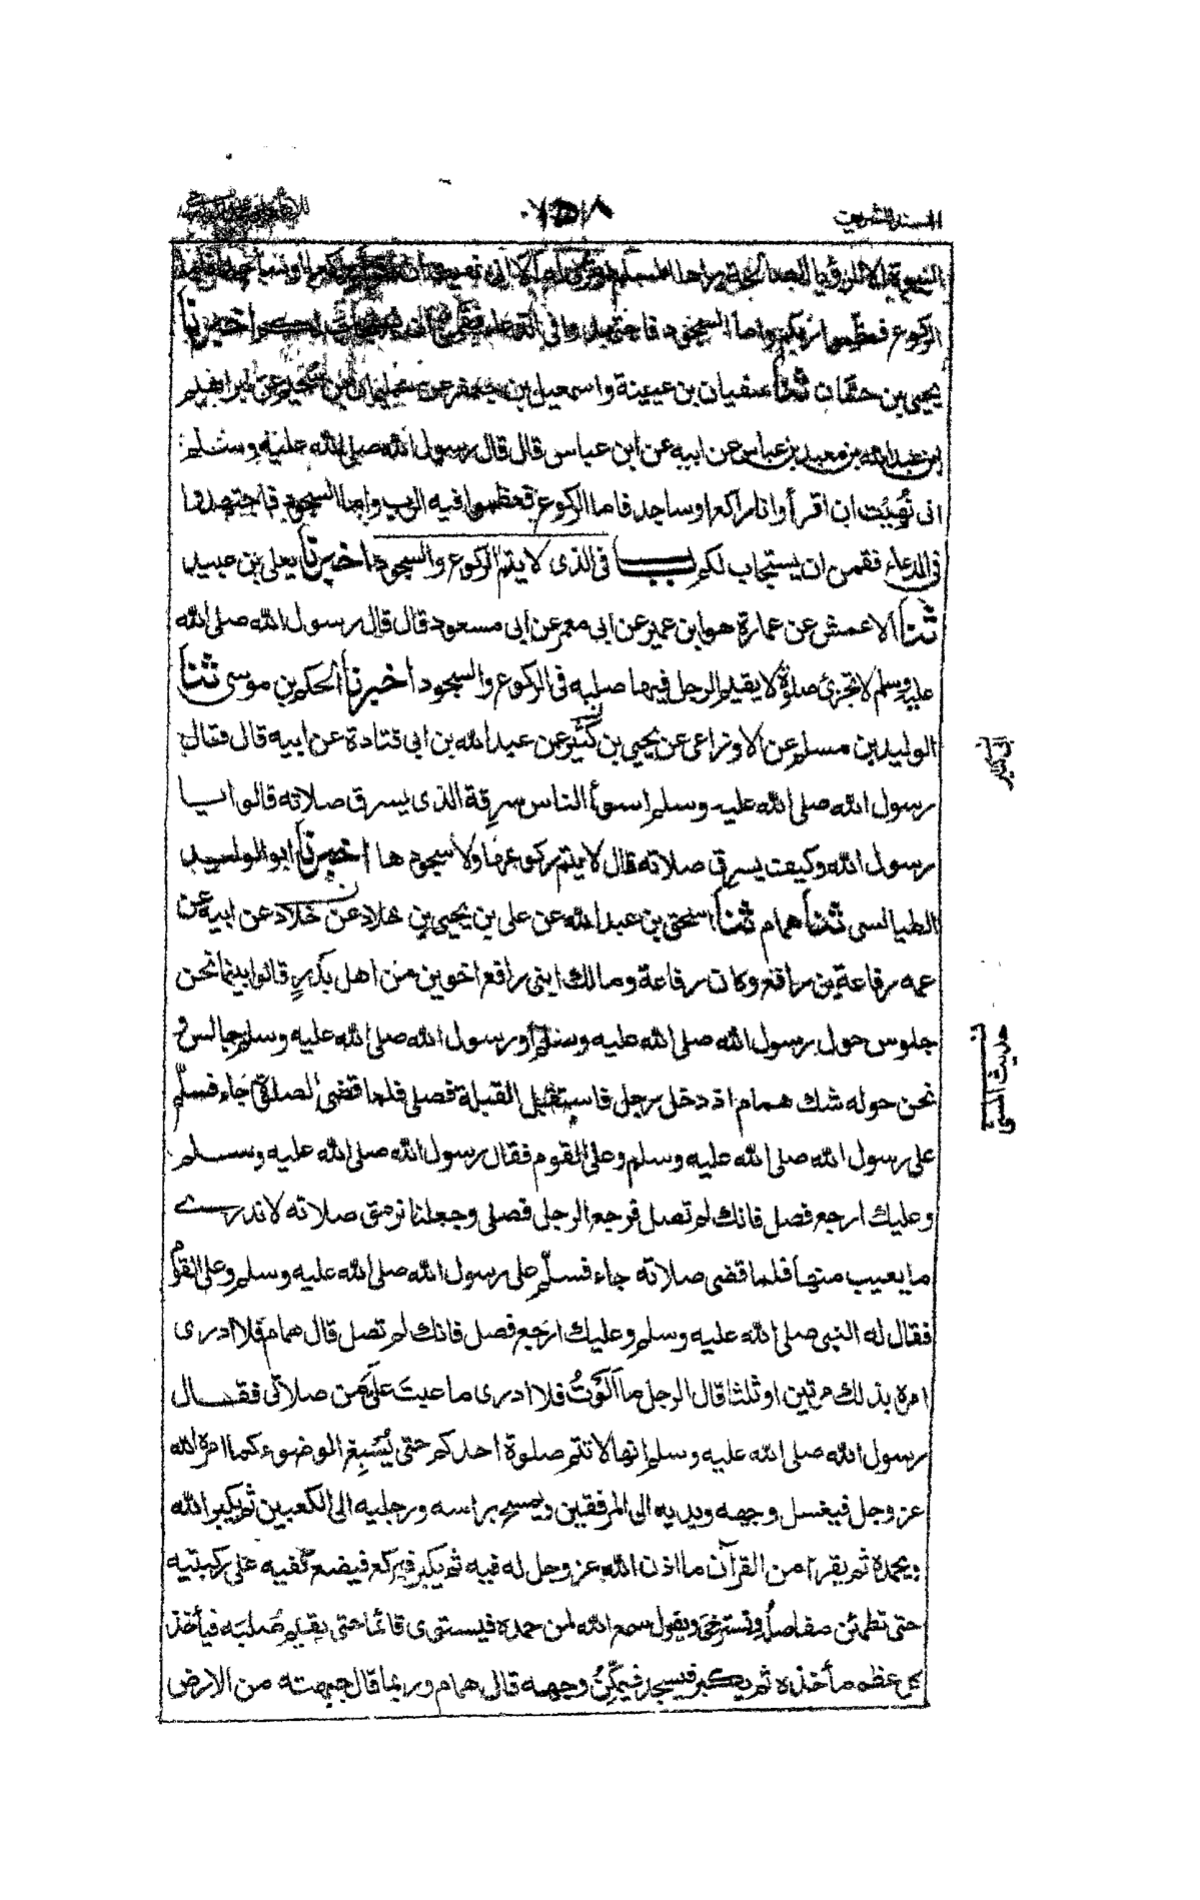 المسند الشريف
١٥٨
النبوة الا الرؤيا الصالحة يراها المسلم او ترى له الا انى نهيت ان
الركوع فعظموا ربكم واما السجود فاجتهدوا فى الدعاء فقمن ان يستجاب لكم اخبرنا
يحيى بن حسان ثنا سفيان بن عيينة واسمعيل بن جعفر عن سليمان بن سحيم عن ابراهيم
بن عبد الله بن معبد بن عباس عن ابيه عن ابن عباس قال قال رسول الله صلى الله عليه وسلم
انى نُهِيْت ان اقرأ وانا راكع او ساجد فاما الركوع فعظموا فيه الرب واما السجود فاجتهدوا
فى الدعاء فقمن ان يستجاب لكم باب فى الذى لا يتم الركوع والسجود اخبرنا يعلى بن عبيد
ثنا الاعمش عن عمارة هو ابن عمير عن ابى معمر عن ابى مسعود قال قال رسول الله صلى الله
عليه وسلم لا تجزئ صلوة لا يقيم الرجل فيها صلبه فى الركوع والسجود اخبرنا الحكم بن موسى ثنا
الوليد بن مسلم عن الاوزاعى عن يحيى بن كثير عن عبد الله بن ابى قتادة عن ابيه قال قال
رسول الله صلى الله عليه وسلم اسوأ الناس سرقة الذى يسرق صلاته قالوا يا
رسول الله وكيف يسرق صلاته قال لا يتم ركوعها ولا سجودها اخبرنا ابو الوليد
الطيالسى ثنا همام ثنا اسحق بن عبد الله عن على بن يحيى بن خلاد عن خلاد عن ابيه عن
عمه رفاعة بن رافع وكان رفاعة ومالك ابنى رافع اخوين من اهل بدرٍ قالوا بينما نحن
جلوس حول رسول الله صلى الله عليه وسلم او رسول الله صلى الله عليه وسلم جالس و
نحن حوله شك همام اذ دخل رجل فاستقبل القبلة فصلى فلما قضى الصلوة جاء فسلّم
على رسول الله صلى الله عليه وسلم وعلى القوم فقال رسول الله صلى الله عليه وسلم
وعليك ارجع فصل فانك لم تصل فرجع الرجل فصلى وجعلنا نرمق صلاته لا ندرى
ما يعيب منها فلما قضى صلاته جاء فسلّم على رسول الله صلى الله عليه وسلم وعلى القوم
فقال له النبى صلى الله عليه وسلم وعليك ارجع فصل فانك لم تصل قال همام فلا ادرى
امره بذلك مرتين او ثلثا قال الرجل ما اَلَوْتُ فلا ادرى ما عبتَ علىَّ من صلاتى فقال
رسول الله صلى الله عليه وسلم انها لا تتم صلوة احدكم حتى يُسْبِغ الوضوء كما امره الله
عز وجل فيغسل وجهه ويديه الى المرفقين ويمسح براسه ورجليه الى الكعبين ثم يكبر الله
ويحمده ثم يقرء من القرآن ما اذن الله عز وجل له فيه ثم يكبر فيركع فيضع كفيه على ركبتيه
حتى تطمئن مفاصله وتسترخى ويقول سمع الله لمن حمده فيستوى قائما حتى يقيم صلبه فيأخذ
كل عظم مأخذه ثم يكبر فيسجد فيمكِّنُ وجهه قال همام وربما قال جبهته من الارض
حديث المسئ